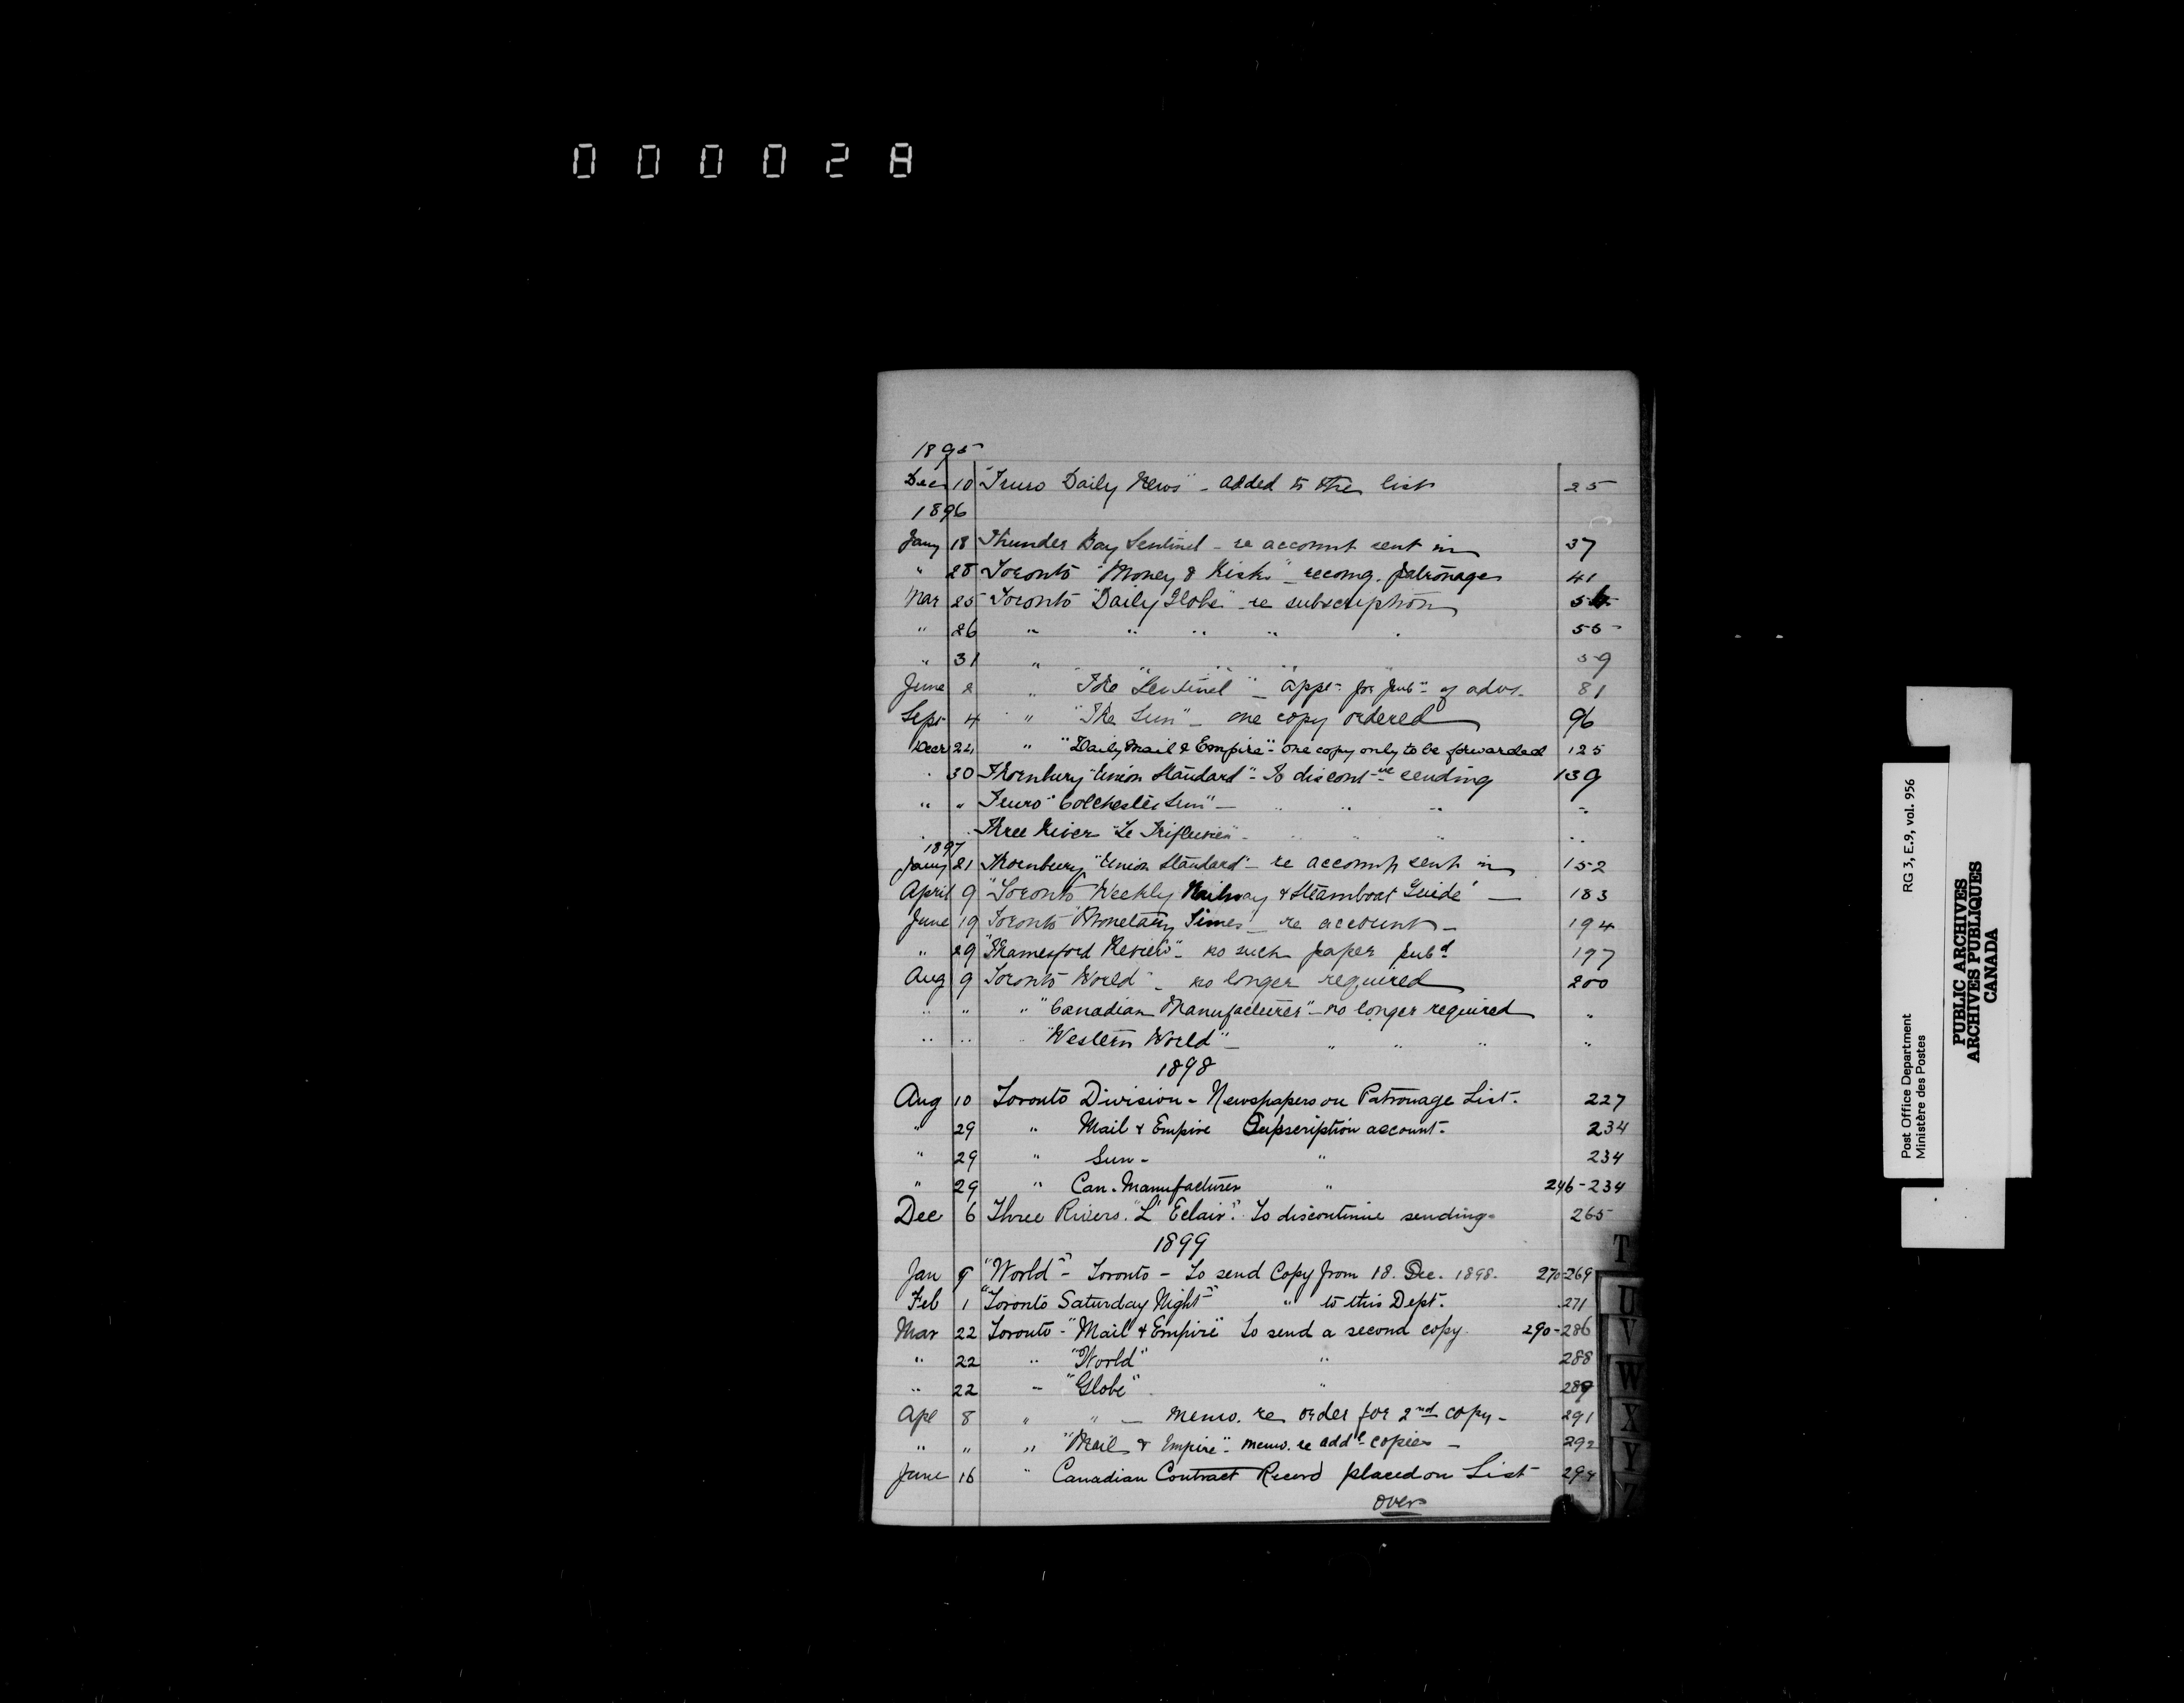 000028
1895
Dec 10 "Truro Daily News" - added to the list 25
1896
Jany 18 Thunder Bay Sentinel - re account sent in 37
" 28 Toronto "Money & Risks" - recomg. patronage 41
Mar 25 Toronto "Daily Globe" re subscription 54
" 26 " " " " " 55
" 31 " " " " " 59
June 2 " "The Sentinel" - appn. for pubn. of advs. 81
Sept 4 " "The Sun" - one copy ordered 96
Decr 24 " "Daily Mail & Empire" - one copy only to be forwarded 125
" 30 Thornbury "Union Standard" - To discontue sending 139
" " Truro "Colchester Sun" - " " " "
" " Three River "Le Trifluvien" - " " " "
1897
Jany 21 Thornbury "Union Standard" - re account sent in 152
April 9 "Toronto Weekly Railway & Steamboat Guide" — 183
June 19 Toronto "Monetary Times - re account - 194
" 29 "Thamesford Review" - no such paper pubd 197
Aug 9 Toronto World" - no longer required 200
" " " "Canadian Manufacturer" - no longer required "
" " " "Western World" - " " " "
1898
Aug 10 Toronto Division - Newspapers on Patronage List. 227
" 29 " Mail & Empire Subscription account. 234
" 29 " Sun - " 234
" 29 " Can. Manufacturer " 246-234
Dec 6 Three Rivers. "L'Eclair". To discontinue sending. 265
1899
Jan 9 "World" - Toronto - To send Copy from 18. Dec. 1898. 270-269
Feb 1 "Toronto Saturday Night" " to this Dept. 271
Mar 22 Toronto - "Mail & Empire" To send a second copy. 290-286
" 22 " "World" " 288
" 22 " "Globe" " 289
Apl 8 " " — Memo. re order for 2nd copy - 291
" " " "Mail & Empire" - memo. re addl copies - 292
June 16 " Canadian Contract Record placed on List 294
over
T
U
V
W
X
Y
Z
Post Office Department RG 3, E.9, vol. 956
Ministère des Postes
PUBLIC ARCHIVES
ARCHIVES PUBLIQUES
CANADA